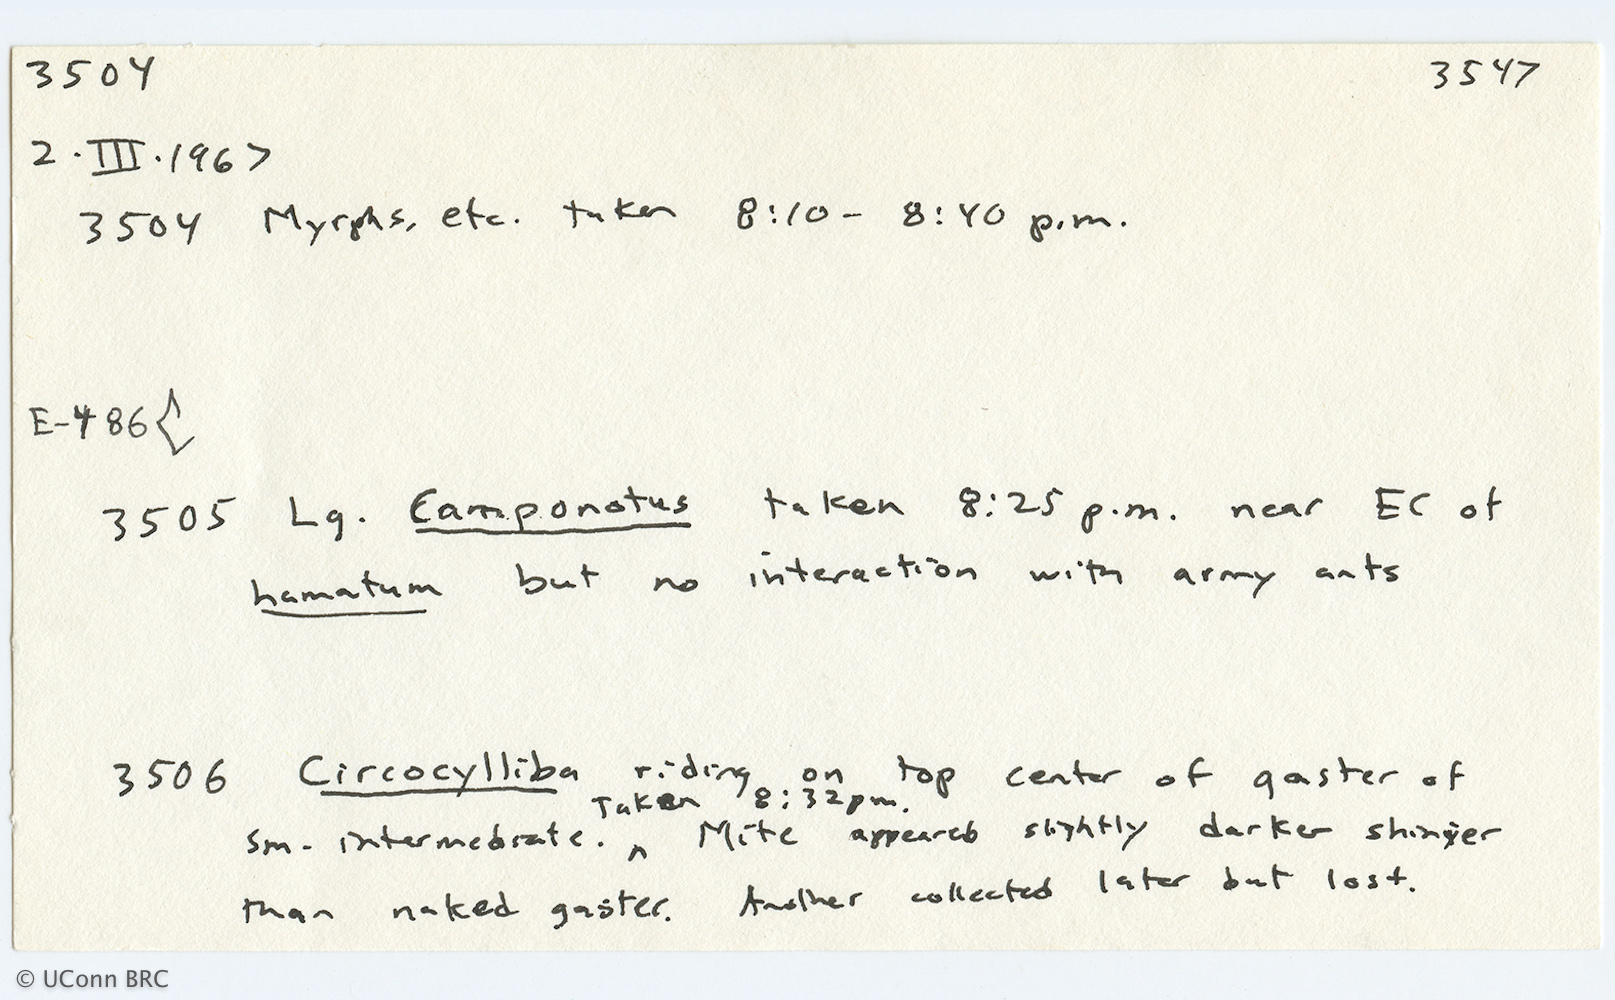 3504 3547
2·III·1967
3504 Myrphs, etc. taken 8:10 - 8:40 p.m.
E-486
3505 Lg. Camponotus taken 8:25 p.m. near EC of
hamatum but no interaction with army ants
3506 Circocylliba riding on top center of gaster of
Taken 8:32 pm.
sm-intermediate. ^ Mite appeared slightly darker shinier
than naked gaster. Another collected later but lost.
© UConn BRC